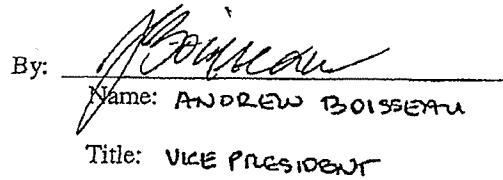 By: ABoisseau
Name: ANDREW BOISSEAU
Title: VICE PRESIDENT